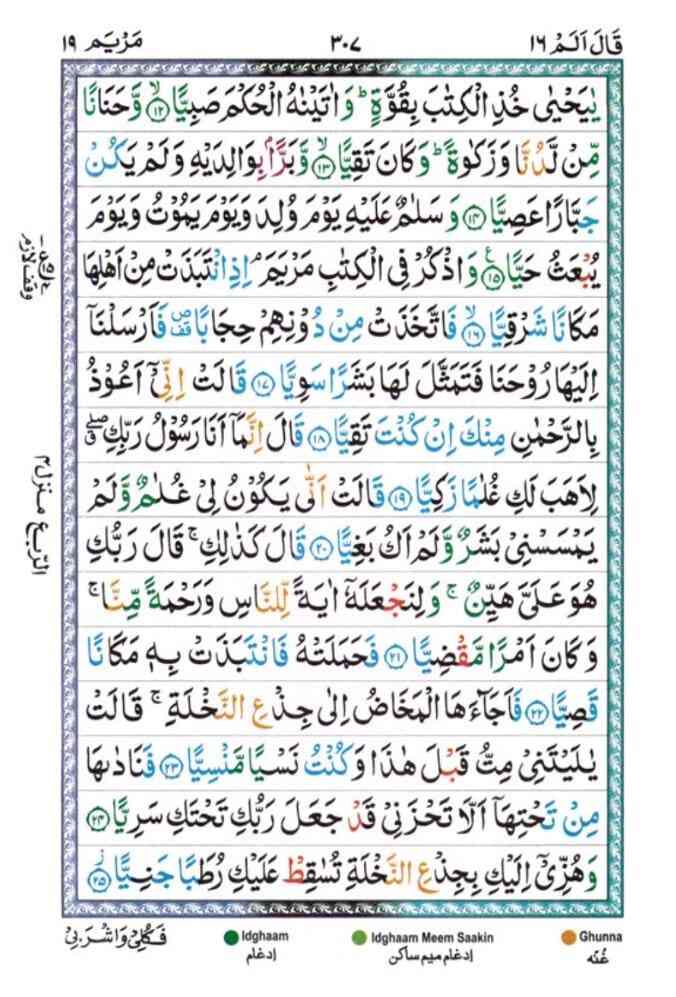 قَالَ اَلَمۡ ١٦ ٣٠٧ مَرۡيَم ١٩
يٰيَحۡيٰى خُذِ الۡكِتٰبَ بِقُوَّةٍ ؕ وَاٰتَيۡنٰهُ الۡحُكۡمَ صَبِيًّا ۙ‏ ﴿۱۲﴾ وَّحَنَانًا
مِّنۡ لَّدُنَّا وَزَكٰوةً ؕ وَكَانَ تَقِيًّا ۙ‏ ﴿۱۳﴾ وَّبَرًّۢا بِوَالِدَيۡهِ وَلَمۡ يَكُنۡ
جَبَّارًا عَصِيًّا‏ ﴿۱۴﴾ وَسَلٰمٌ عَلَيۡهِ يَوۡمَ وُلِدَ وَيَوۡمَ يَمُوۡتُ وَيَوۡمَ
يُبۡعَثُ حَيًّا‏ ﴿۱۵﴾ ع وَاذۡكُرۡ فِى الۡكِتٰبِ مَرۡيَمَ‌ۘ اِذِ انْتَبَذَتۡ مِنۡ اَهۡلِهَا
مَكَانًا شَرۡقِيًّا ۙ‏ ﴿۱۶﴾ فَاتَّخَذَتۡ مِنۡ دُوۡنِهِمۡ حِجَابًا قف فَاَرۡسَلۡنَاۤ
اِلَيۡهَا رُوۡحَنَا فَتَمَثَّلَ لَهَا بَشَرًا سَوِيًّا‏ ﴿۱۷﴾ قَالَتۡ اِنِّىۡۤ اَعُوۡذُ
بِالرَّحۡمٰنِ مِنۡكَ اِنۡ كُنۡتَ تَقِيًّا‏ ﴿۱۸﴾ قَالَ اِنَّمَاۤ اَنَا رَسُوۡلُ رَبِّكِ ۖ ق
لِاَهَبَ لَكِ غُلٰمًا زَكِيًّا‏ ﴿۱۹﴾ قَالَتۡ اَنّٰى يَكُوۡنُ لِىۡ غُلٰمٌ وَّلَمۡ
يَمۡسَسۡنِىۡ بَشَرٌ وَّلَمۡ اَكُ بَغِيًّا‏ ﴿۲۰﴾ قَالَ كَذٰلِكِ‌ ۚ قَالَ رَبُّكِ
هُوَ عَلَىَّ هَيِّنٌ‌ ۚ وَلِنَجۡعَلَهٗۤ اٰيَةً لِّلنَّاسِ وَرَحۡمَةً مِّنَّا‌ ۚ
وَكَانَ اَمۡرًا مَّقۡضِيًّا‏ ﴿۲۱﴾ فَحَمَلَتۡهُ فَانْتَبَذَتۡ بِهٖ مَكَانًا
قَصِيًّا‏ ﴿۲۲﴾ فَاَجَآءَهَا الۡمَخَاضُ اِلٰى جِذۡعِ النَّخۡلَةِ‌ ۚ قَالَتۡ
يٰلَيۡتَنِىۡ مِتُّ قَبۡلَ هٰذَا وَكُنۡتُ نَسۡيًا مَّنۡسِيًّا‏ ﴿۲۳﴾ فَنَادٰٮهَا
مِنۡ تَحۡتِهَاۤ اَلَّا تَحۡزَنِىۡ قَدۡ جَعَلَ رَبُّكِ تَحۡتَكِ سَرِيًّا‏ ﴿۲۴﴾
وَهُزِّىۡۤ اِلَيۡكِ بِجِذۡعِ النَّخۡلَةِ تُسٰقِطۡ عَلَيۡكِ رُطَبًا جَنِيًّا‏ ﴿۲۵﴾
وقف لازم
الرّبع منزل ٤
فَكُلِىۡ وَاشۡرَبِىۡ Idghaam Idghaam Meem Saakin Ghunna
إدغام إدغام ميم ساكن غُنّه